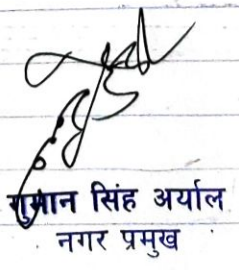 गुमान सिंह अर्याल
नगर प्रमुख